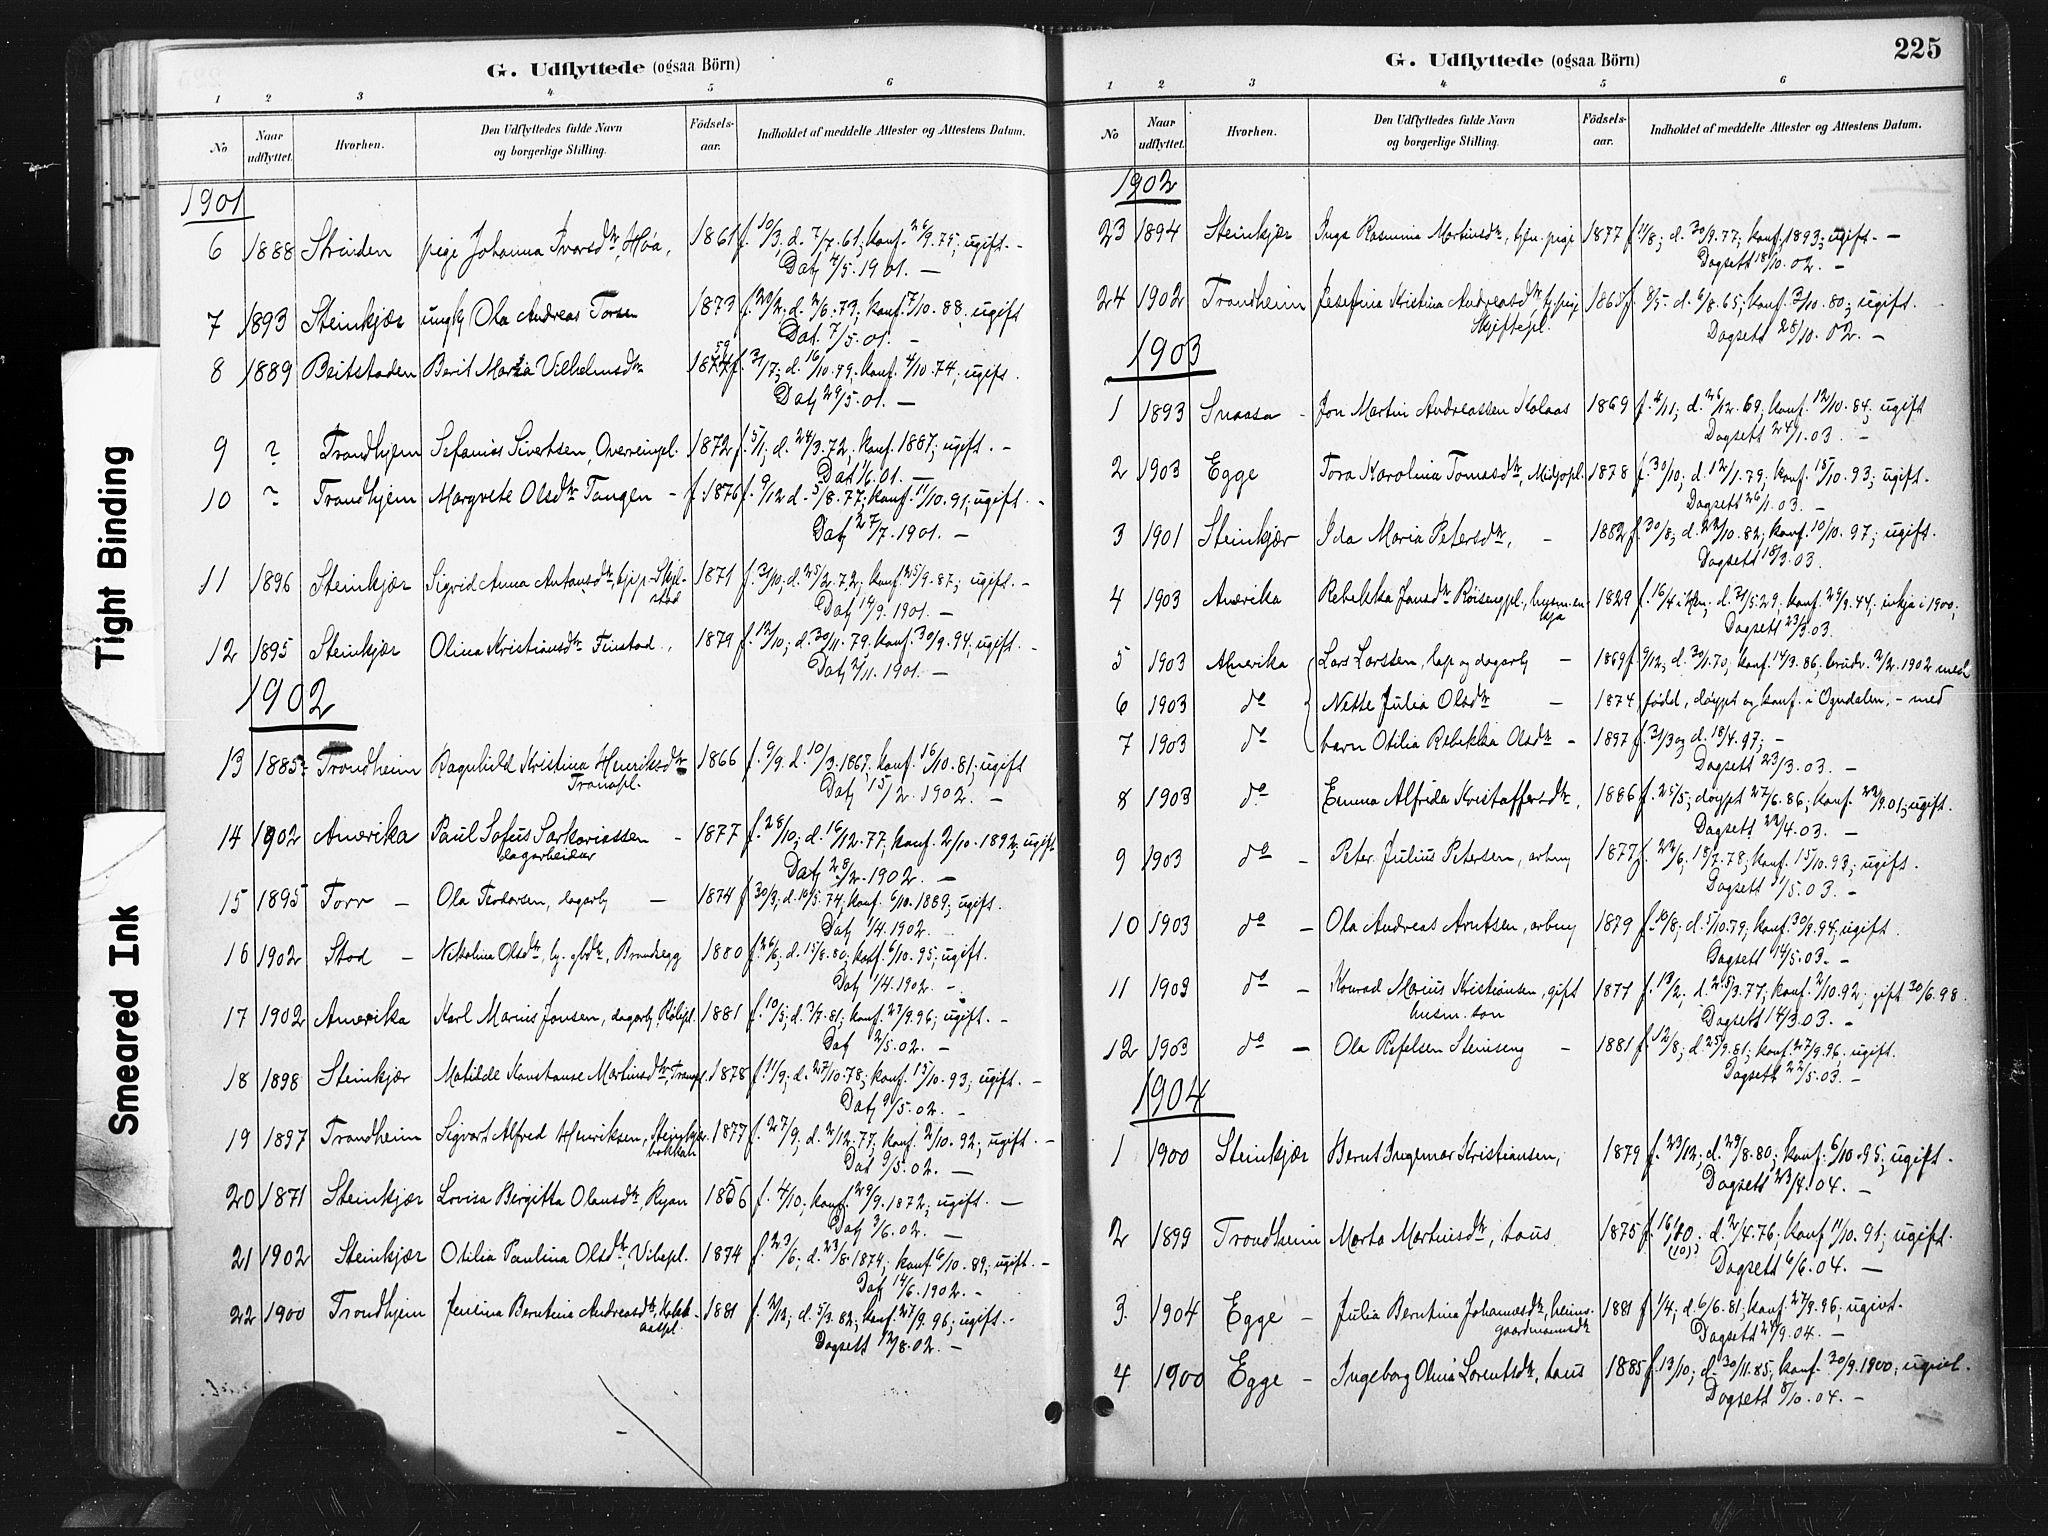 G. Udflyttede (ogsaa Börn)
1 2 3 4 5 6
No Naar udflyttet. Hvorhen. Den Udflyttedes fulde Navn og borgerlige Stilling. Födsels-aar. Indholdet af meddelte Attester og Attestens Datum.
1901
6 1888 Strinden pige Johanna Ivarsdtr, Høa, 1861 f. 10/3, d. 7/7.61; konf. 26/9.75; ugift. -
Dat. 4/5.1901. -
7 1893 Steinkjær ungk Ola Andreas Torsen 1873 f. 23/2; d. 2/6.73; konf. 7/10.88; ugift
Dat. 7/5.01. -
8 1889 Beitstaden Berit Maria Vilhelmsdtr 59 f. 31/7; d. 16/10.59; konf. 4/10.74; ugift.
Dat. 29/5.01. -
9 ? Trondhjem Sefanias Sivertsen, Overreinpl. 1872 f. 5/1; d. 24/3.72; konf. 1887; ugift. -
Dat. 1/6.01. -
10 ? Trondhjem Margrete Olsdtr Tangen - f. 1876 f. 9/12 d. 5/8.77; konf. 11/10.91; ugift. -
Dat. 27/7.1901. -
11 1896 Steinkjær Sigrid Anna Antonsdtr, Skjel-stad 1871 f. 31/10; d. 25/2.72; konf. 25/9.87; ugift. -
Dat. 14/9.1901. -
12 1895 Steinkjær Olina Kristiansdtr Finstad, 1879 f. 12/10; d. 30/11.79. konf. 30/9.94; ugift. -
Dat. 2/11.1901. -
1902
13 1885 Trondheim Ragnhild Kristina Henriksdtr 1866 f. 9/9. d. 10/3.1867, konf. 16/10.81; ugift
Tranapl. Dat. 15/2.1902. -
14 1902 Amerika Paul Sofus Sakariassen - 1877 f. 28/10; d. 16/12.77; konf. 2/10.1892; ugift
dagarbeider Dat. 28/2.1902. -
15 1895 Torr - Ola Teodorsen, dagarb - 1874 f. 30/3; d. 10/5.74; konf. 6/10.1889; ugift.
Dat. 1/4.1902.
16 1902 Stod - Nikolina Olsdtr, Brandsegg 1880 f. 26/6; d. 15/8.80; konf. 6/10.95; ugift.
Dat. 1/4.1902. -
17 1902 Amerika Karl Marius Jonsen, dagarb, 1881 f. 10/5; d. 3/7.81; konf. 27/9.96; ugift. -
Dat. 2/5.02. -
18 1898 Steinkjær Matilde Konstanse Martinsdtr, Tranapl. 1878 f. 11/9; d. 27/10.78; konf. 15/10.93; ugift. -
Dat. 9/5.02. -
19 1897 Trondheim Sigvart Alfred Henriksen, 1877 f. 27/9, d. 2/12.77; konf. 2/10.92; ugift. -
Dat. 9/5.02. -
20 1871 Steinkjær Lovisa Bergitta Olausdtr Ryan 1856 f. 4/10; konf. 29/9.1872; ugift. -
Dat. 3/6.02. -
21 1902 Steinkjær Otilia Paulina Olsdtr, Vibepl. 1874 f. 23/6; d. 23/8.1874; konf. 6/10.89; ugift. -
Dat. 14/6.1902. -
22 1900 Trondhjem Jensina Berntina Andreasdtr, 1881 f. 2/12; d. 5/3.82; konf. 27/9.96; ugift. -
Dagsett 12/8.02. -
Tight Binding
Smeared Ink
225
G. Udflyttede (ogsaa Börn)
1 2 3 4 5 6
No Naar udflyttet. Hvorhen. Den Udflyttedes fulde Navn og borgerlige Stilling. Födsels-aar. Indholdet af meddelte Attester og Attestens Datum.
1902
23 1894 Steinkjær Inga Rasmina Martinsdtr, tjen. pige 1877 f. 11/8; d. 30/9.77; konf. 1893; ugift. -
Dagsett 18/10.02. -
24 1902 Trondheim Josefina Kristina Andreasdtr, 1865 f. 8/5. d. 6/8.65; konf. 3/10.80; ugift.
Skjeftepl. Dagsett 28/10.02. -
1903
1 1893 Snaasa - Jon Martin Andreassen Kolaas 1869 f. 4/11; d. 26/12.69; konf. 12/10.84; ugift
Dagsett 24/1.03. -
2 1903 Egge Tora Karolina Tomasdtr, Midjopl. 1878 f. 30/10; d. 12/1.79; konf. 15/10.93; ugift.
Dagsett 26/1.03. -
3 1901 Steinkjær Ida Maria Petersdtr, - 1882 f. 30/8; d. 22/10.82; konf. 10/10.97; ugift.
Dagsett 18/3.03.
4 1903 Amerika Rebekka Jonsdtr Røisengpl., husm.en-kja 1829 f. 16/4 d. 31/5.29. konf. 29/9.44; enkja i 1900;
Dagsett 23/3.03.
5 1903 Amerika Lars Larssen, dagarb - 1869 f. 9/12; d. 30/1.70; konf. 14/3.86; brudv. 2/2.1902 med
6 1903 do Nette Julia Olsdtr - 1874 fødd, døypt og konf. i Ogndalen, - med
7 1903 do barn Otilia Rebekka Olsdtr - 1897 f. 31/3 og d. 18/4.97; -
Dagsett 23/3.03. -
8 1903 do Emma Alfrida Kristoffersdtr, 1886 f. 25/5; døypt 27/6.86; konf. 22/9.01; ugift.
Dagsett 22/4.03. -
9 1903 do - Peter Julius Petersen, arbmg 1877 f. 22/6, 18/7.78; konf. 15/10.93; ugift.
Dagsett 5/5.03. -
10 1903 do - Ola Andreas Arntsen, arbmg 1879 f. 10/8; d. 5/10.79; konf. 30/9.94; ugift.
Dagsett 14/5.03. -
11 1903 do - Konrad Marius Kristiansen, gift 1877 f. 13/2; d. 25/3.77; konf. 2/10.92; gift 30/6.98.
husm.son Dagsett 14/3.03. -
12 1903 do - Ola Refelsen Steinseng - 1881 f. 12/8; d. 25/9.81; konf. 27/9.96. ugift.
Dagsett 22/5.03. -
1904
1 1900 Steinkjær Bernt Ingemar Kristiansen, 1879 f. 23/12; d. 29/8.80; konf. 6/10.95; ugift.
Dagsett 23/4.04. -
2 1899 Trondheim Marta Martinsdtr, taus 1875 f. 16/10. d. 2/4.76; konf. 11/10.91; ugift.
(10?) Dagsett 6/6.04. -
3. 1904 Egge - Julia Berntina Johannesdtr, heims-gaardmannsdtr 1881 f. 1/4; d. 6/6.81; konf. 27/9.96; ugivt.
Dagsett 24/9.04. -
4 1900 Egge - Ingeborg Olina Lorentsdtr, taus 1885 f. 13/10; d. 30/11.85; konf. 30/9.1900; ugivt.
Dagsett 8/10.04. -